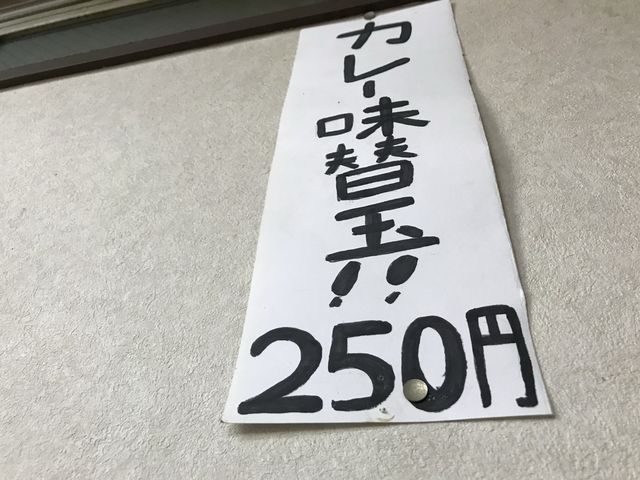 カレー味替玉!!
250円